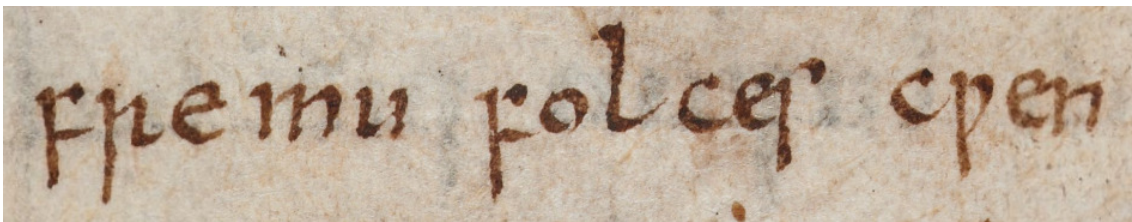 fremu folces cƿen